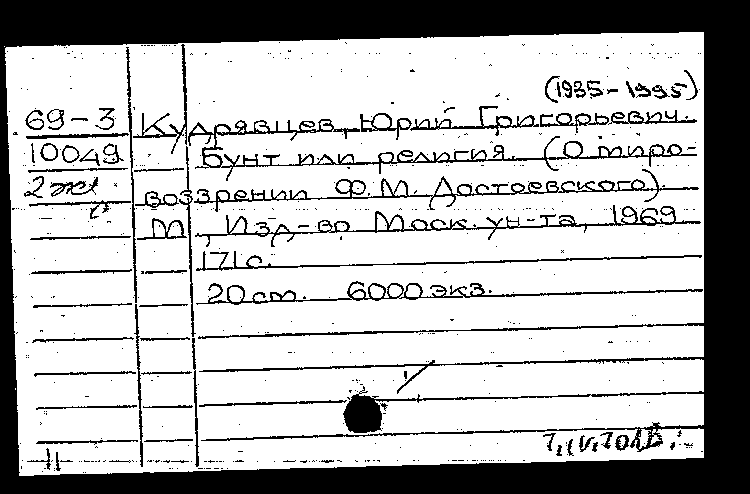 (1935-1995)
69-3 Кудрявцев, Юрий Григорьевич.
10049 Бунт или религия. (О миро-
2 экз. воззрении Ф.М. Достоевского).
М., Изд-во Моск. ун-та, 1969
171 с.
20 cm. 6000 экз.